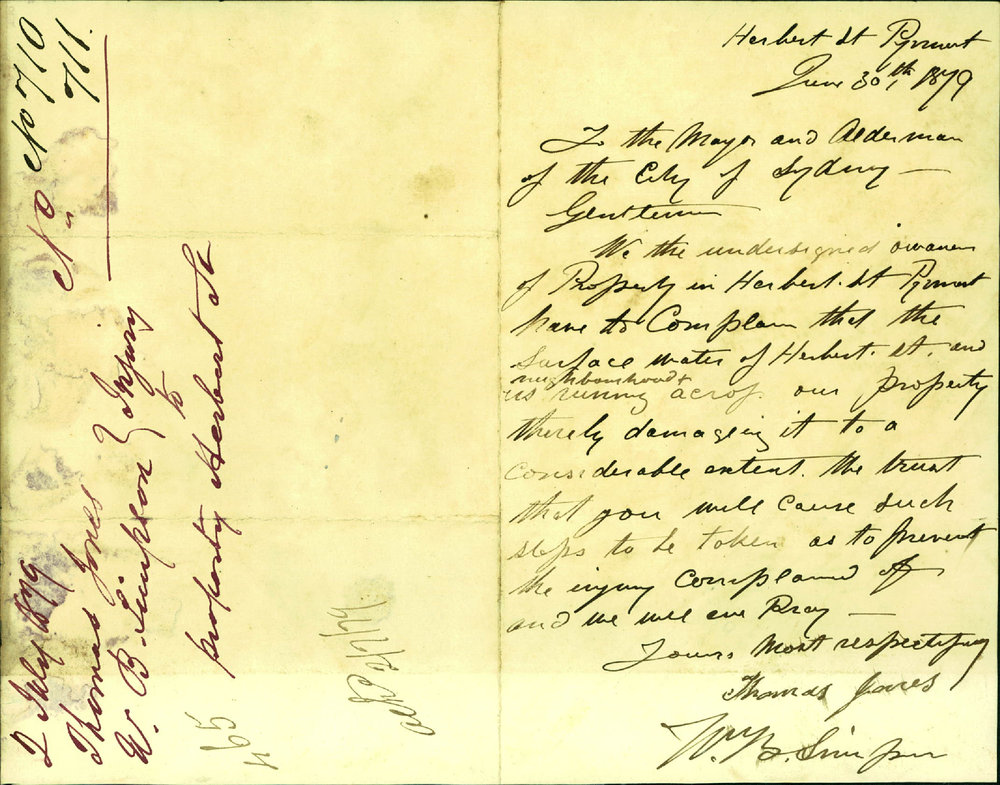 No 710
" 711.
2 July 1879
Thomas Jones } Injury
W. B. Simpson } to
property Herbert St
465
Herbert St Pyrmont
June 30th 1879
To the Mayor and Alderman
of the City of Sydney —
Gentlemen
We the undersigned owners
of Property in Herbert. St Pyrmont
have to Complain that the
Surface water of Herbert. St. and
neighbourhood
is running across our property
therely damageing it to a
considerable extent. We trust
that you will cause such
steps to be taken as to prevent
the injury Complained of
and we will ever Pray —
Yours Most respectfully
Thomas Jones
Wm B. Simpson